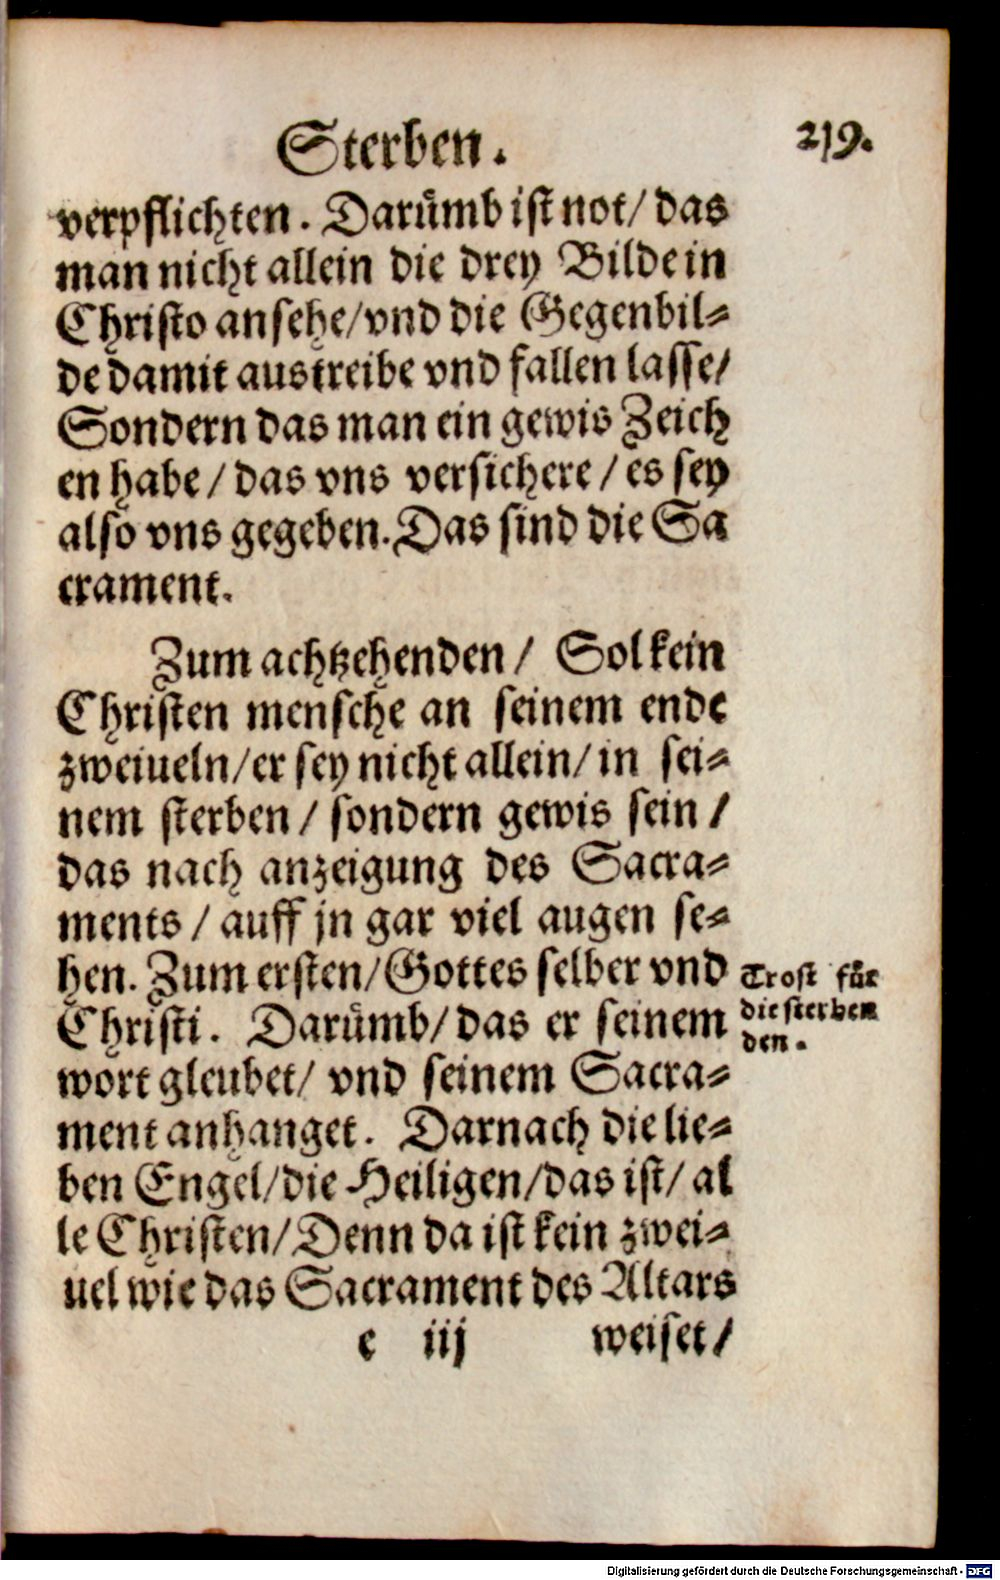 Sterben. 219.
verpflichten. Darümb ist not/ das
man nicht allein die drey Bilde in
Christo ansehe/ vnd die Gegenbil-
de damit austreibe vnd fallen lasse/
Sondern das man ein gewis Zeich
en habe / das vns versichere / es sey
also vns gegeben. Das sind die Sa
crament.
Zum achtzehenden / Sol kein
Christen mensche an seinem ende
zweiueln/ er sey nicht allein/ in sei-
nem sterben / sondern gewis sein /
das nach anzeigung des Sacra-
ments / auff jn gar viel augen se-
hen. Zum ersten/ Gottes selber vnd
Christi. Darümb/ das er seinem
wort gleubet/ vnd seinem Sacra-
ment anhanget. Darnach die lie-
ben Engel/ die Heiligen/ das ist/ al
le Christen/ Denn da ist kein zwei-
uel wie das Sacrament des Altars
e iij weiset /
Trost für
die sterben
den.
Digitalisierung gefördert durch die Deutsche Forschungsgemeinschaft - DFG